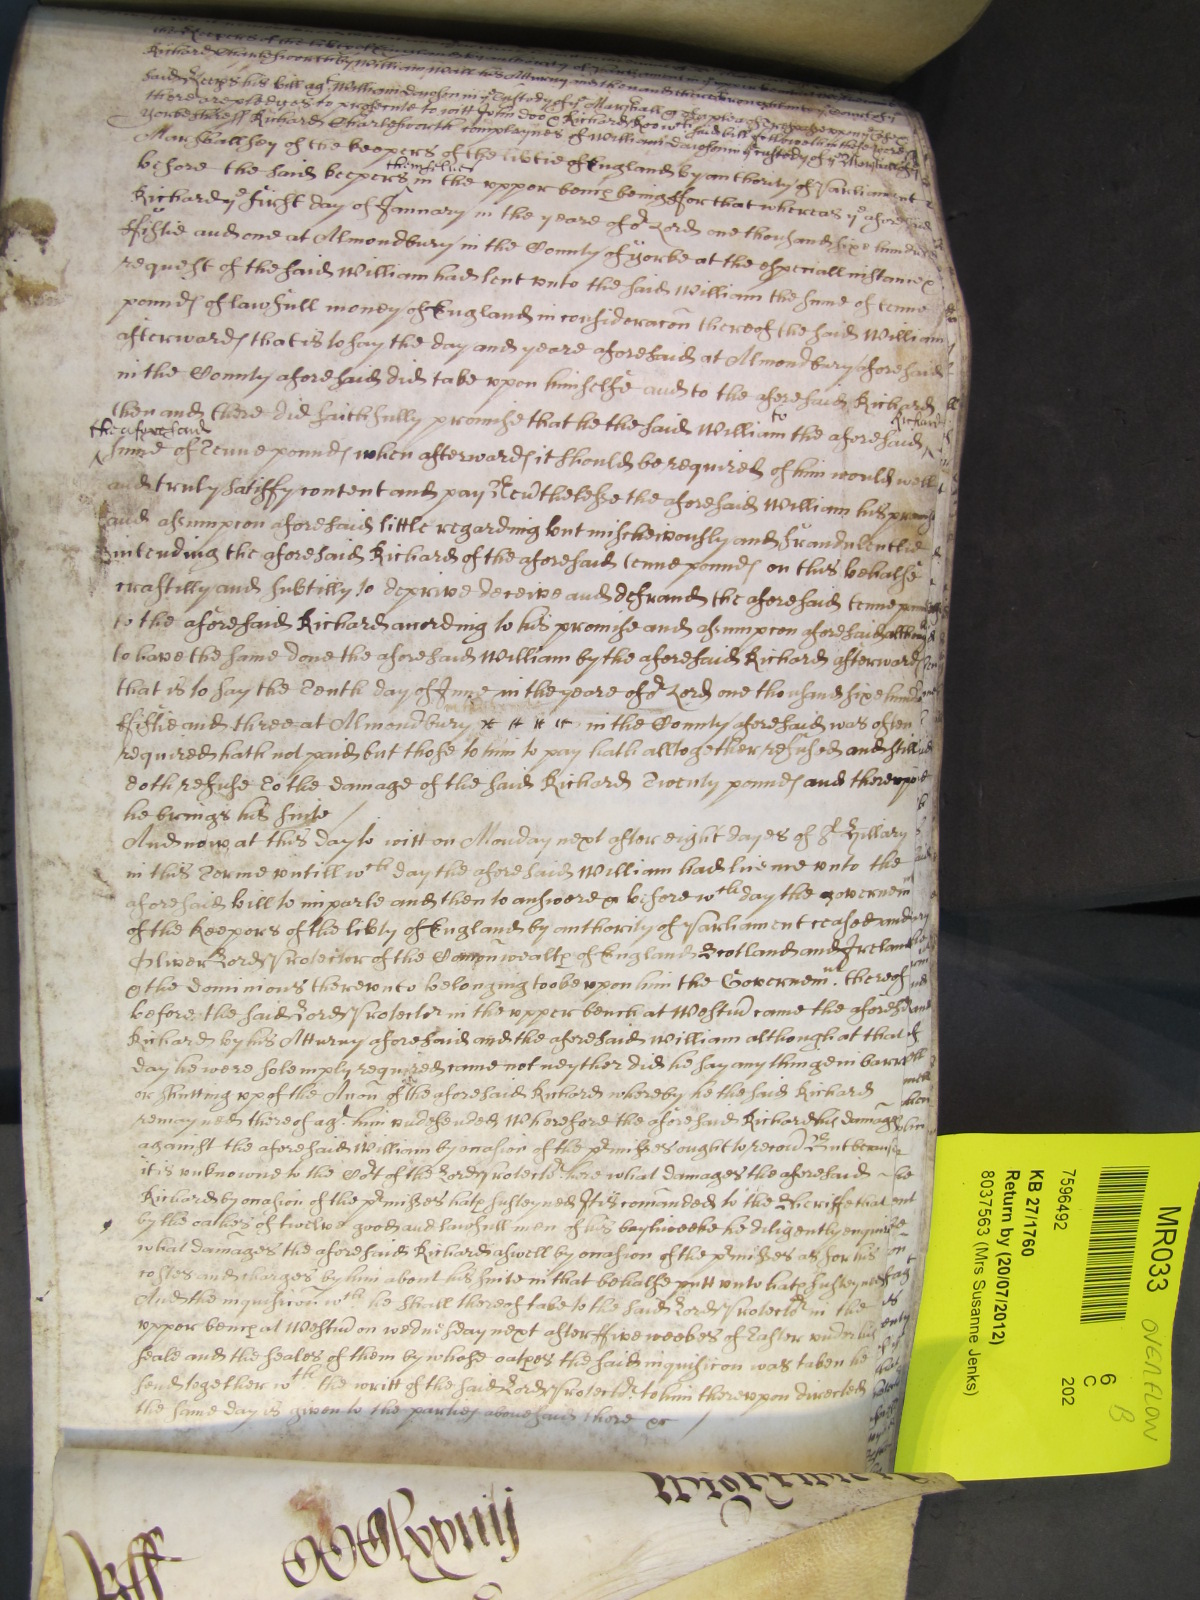 the Keepers of the libtie of England by authority of Parliament
Richard Charlesworth by William Wall his Attorney
said Keepers his bill agt William Dawson in ye Custody of ye Marshall &c of a plea of Trespass upon ye Case
there are pledges to prosecute to witt John Doo & Richard Roo wch said bill followeth in these words
Yorkes ss Richard Charlesworth complaynes of William Dawson in ye custody of ye Marshall of ye
Marshallsey of the keepers of the libtie of England by authority of Parliament
before the said keepers themselves in the upper bench being ffor that whereas ye aforesaid
Richard ye first day of January in the yeare of or Lord one thousand sixe hundred
ffiftie and one at Almondbury in the County of Yorke at the especiall instance &
request of the said William had lent unto the said William the sume of tenne
pounds of lawfull money of England in consideracon thereof the said William
afterwards that is to say the day and yeare aforesaid at Almondbury aforesaid
in the County aforesaid did take upon himselfe and to the aforesaid Richard
then and there did faithfully promise that he the said William to the aforesaid Richard
the aforesaid sume of Tenne pounds when afterwards it should be required of him would well
and truly satisfy content and pay Nevthelesse the aforesaid William his promise
and assumpcon aforesaid little regarding but mischeivously and fraudulentlie
intending the aforesaid Richard of the aforesaid tenne pounds on this behalfe
craftilly and subtilly to deprive deceive and defraud the aforesaid tenne pounds
to the aforesaid Richard according to his promise and assumpcon aforesaid although
to have the same done the aforesaid William by the aforesaid Richard afterwards
that is to say the Tenth day of June in the yeare of or Lord one thousand sixe hundred
ffiftie and three at Almondbury in the County aforesaid was often
required hath not paid but those to him to pay hath alltogether refused and still
doth refuse To the damage of the said Richard Twenty pounds and thereupon
he brings his suite
And now at this day to witt on Monday next after eight dayes of St Hillary
in this Terme untill wch day the aforesaid William had license unto the
aforesaid bill to imparle and then to answere &c before wch day the governemt
of the Keepers of the libty of England by authority of Parliament ceased and
Oliver Lord Protector of the Comonwealth of England Scotland and Ireland
& the dominions thereunto belonging tooke upon him the Governemt thereof
before the said Lord Protector in the upper bench at Westm came the aforesd
Richard by his Atturny aforesaid and the aforesaid William although at that
day he were solemply required came not neyther did he say any thinge in barr
or shutting up of the Accon of the aforesaid Richard whereby he the said Richard
remayned thereof agt him undefended Wherefore the aforesaid Richard his damages
against the aforesaid William by occasion of the pmisses ought to recov But because
it is unknowne to the Cort of the Lord Protector here what damages the aforesaid
Richard by occasion of the pmisses hath susteyned It is comanded to the Sheriffe that
by the oathes of twelve good and lawfull men of his baylweeke he diligently enquire
what damages the aforesaid Richard aswell by occasion of the pmisses as for his
costes and charges by him about his suite in that behalfe putt unto hath susteyned
And the inquisicon wch he shall thereof take to the said Lord Protector in the
upper bench at Westm on wednesday next after ffive weekes of Easter under his
seale and the seales of them by whose oathes the said inquisicon was taken he
send together wth the writt of the said Lord Protector to him thereupon directed
the same day is given to the parties abovesaid there &c
MR033 OVERFLOW
6 B
C
202
7596492
KB 27/1760
Return by (20/07/2012)
8037563 (Mrs Susanne Jenks)